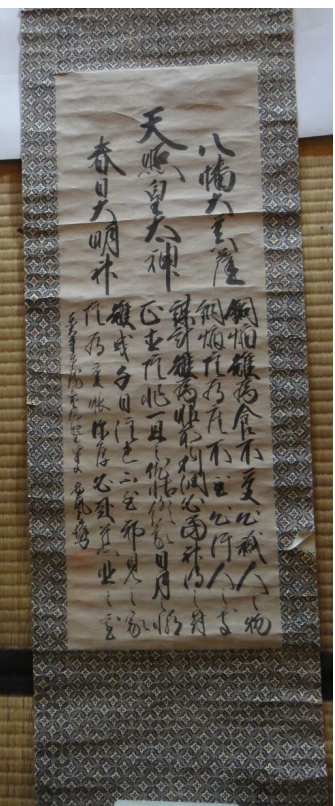 八幡大菩薩
天照皇大神
春日大明神
銅焔雖為食不受心穢人之物
銅焔雖為座不至心汗人之處
謀計雖為眼前利潤必當神明之罰
正直雖非一旦之依怙終蒙日月之憐
雖曳千日注連不至邪見之家
雖為重服深厚必赴慈悲之室